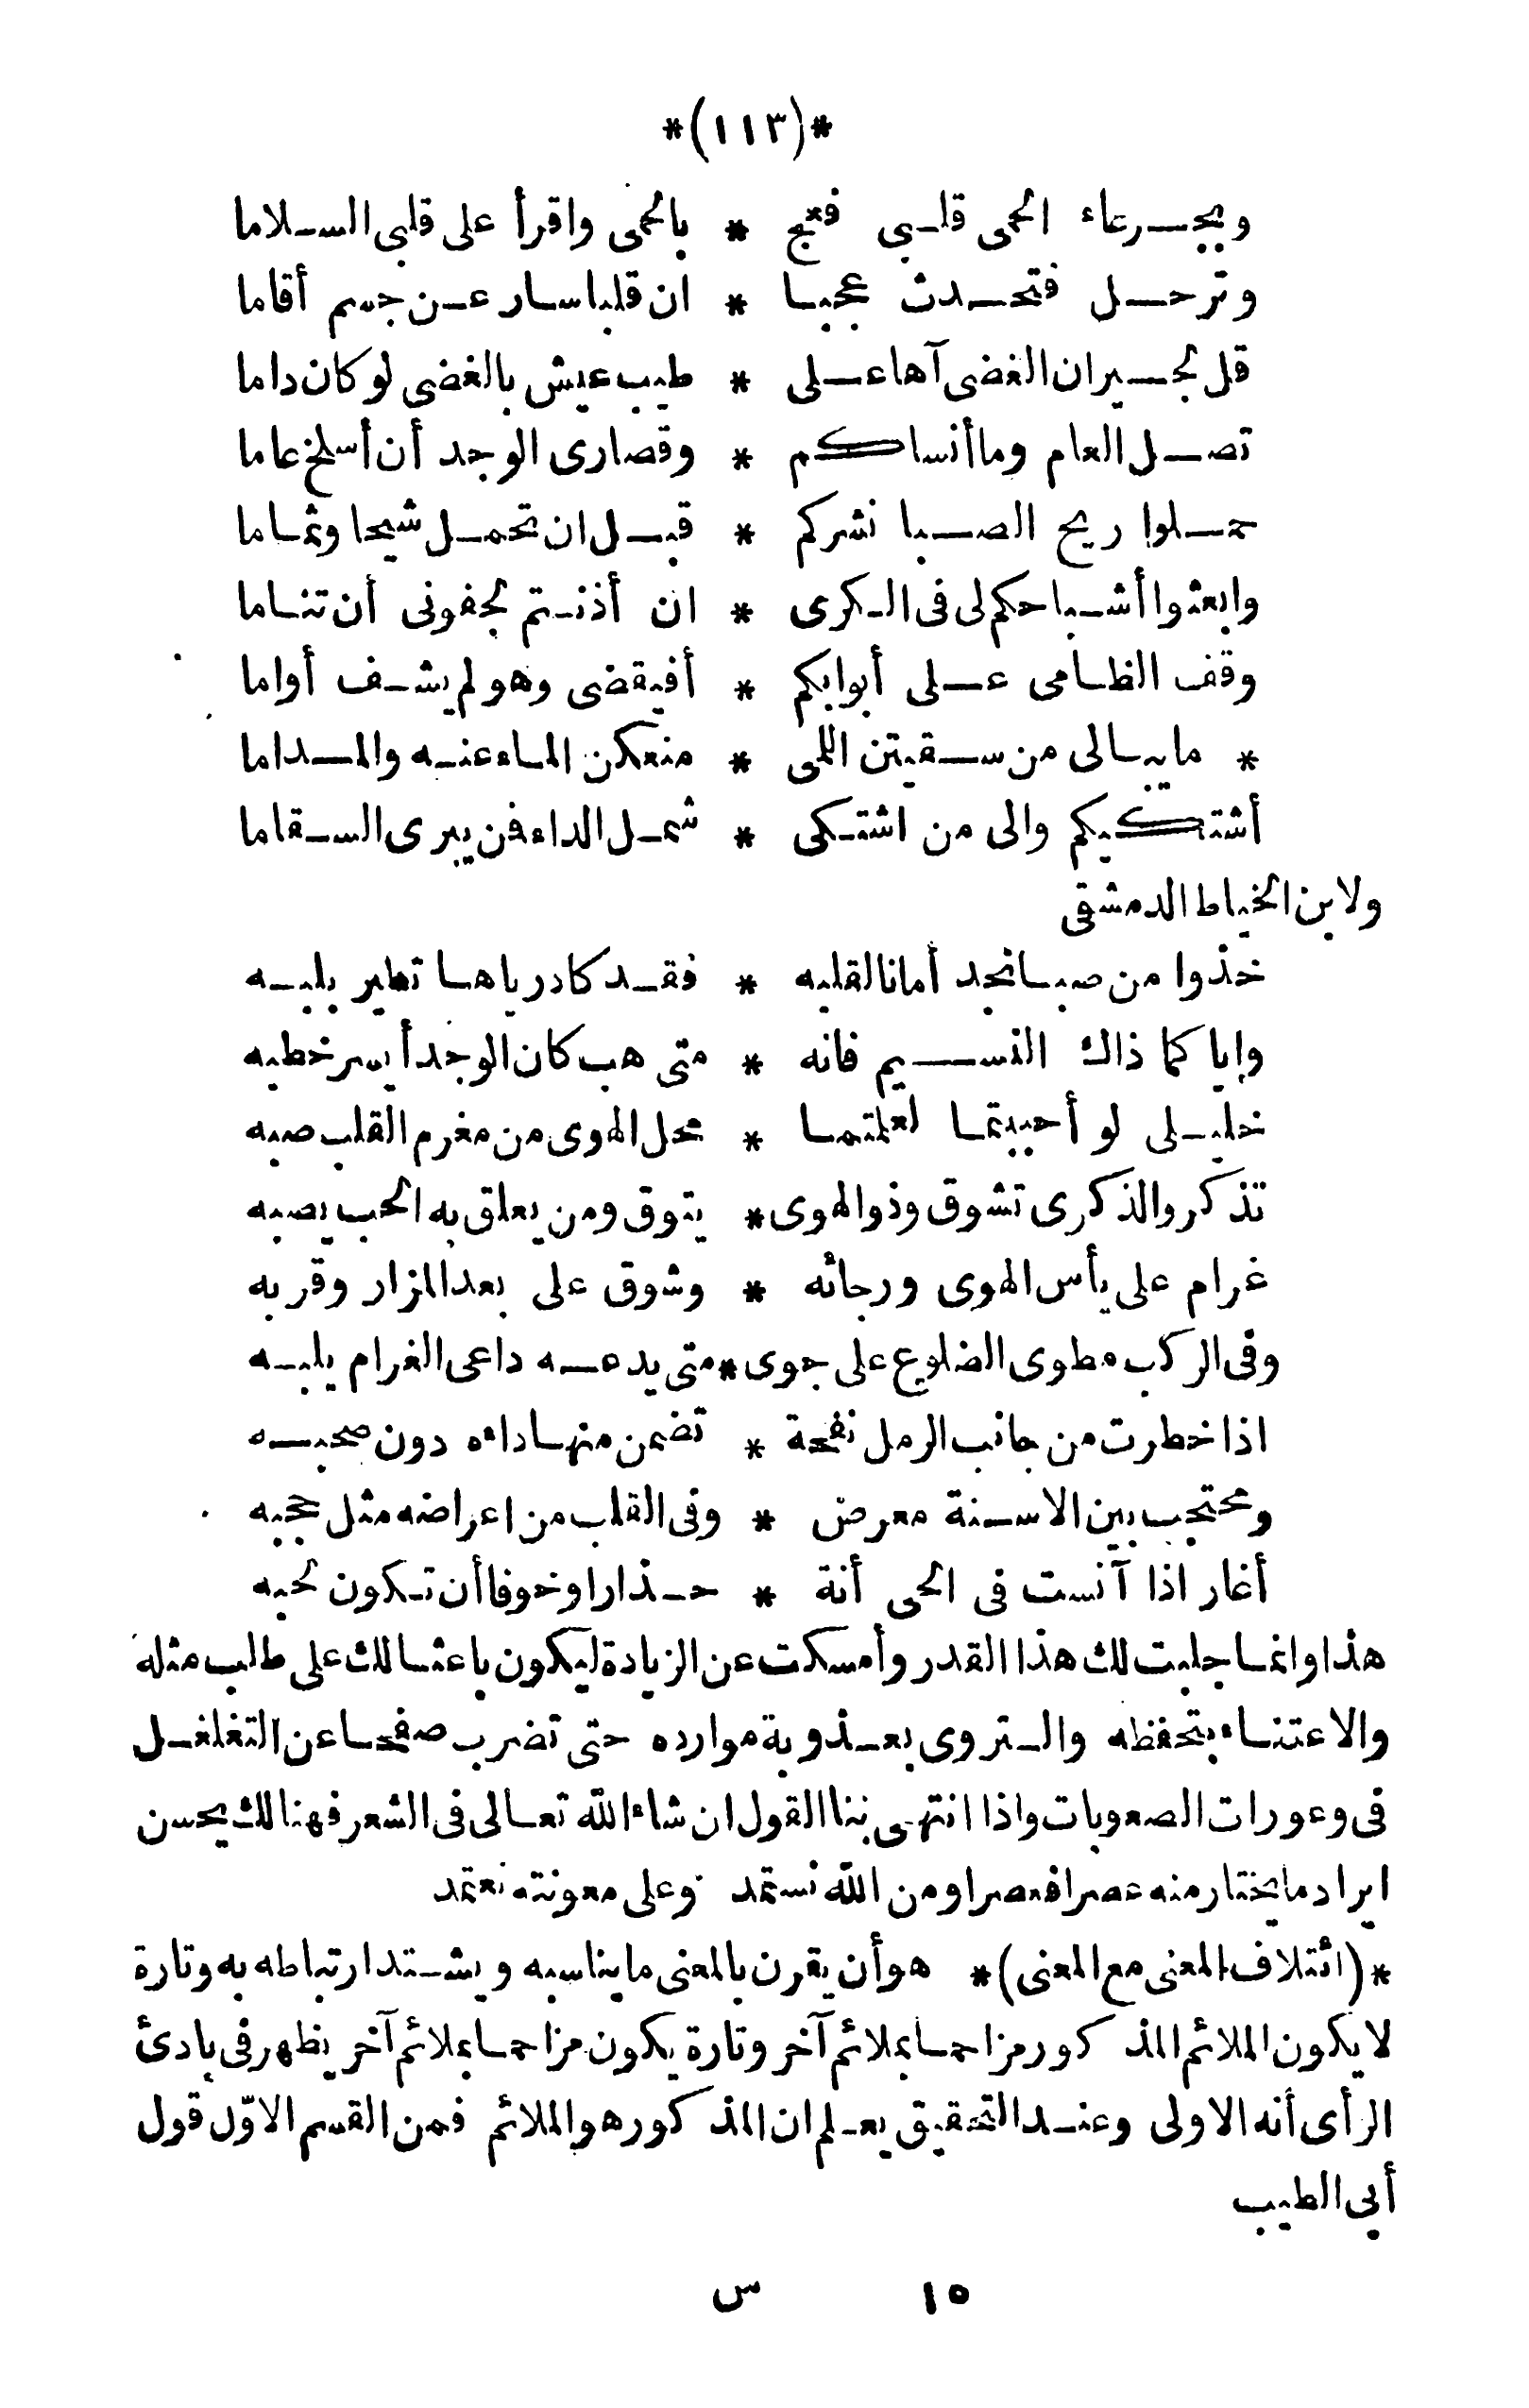 *(١١٣)*
وبجرعاء الحمى قلبي فعج * بالحمى واقرأ على قلبى السلاما
وترحل فتحدث عجبا * ان قلبا سار عن جسم أقاما
قل لجيران الغضى آها على * طيب عيش بالغضى لو كان داما
تصل العام وما أنساكم * وقصارى الوجد أن أسلخ عاما
حملوا ريح الصبا نشركم * قبل ان تحمل شيحا وثماما
وابعثوا أشباحكم لى فى الكرى * ان أذنتم لجفونى أن تناما
وقف الظامى على أبوابكم * أفيقضى وهو لم يشف أواما
* ما يبالى من سقيتن اللمى * منعكن الماء عنه والمداما
أشتكيكم والى من اشتكى * شمل الداء فمن يبرى السقاما
ولابن الخياط الدمشقى
خذوا من صبا نجد أمانا لقلبه * فقد كاد رياها تطير بلبه
وايا كما ذاك النسيم فانه * متى هب كان الوجد أيسر خطبه
خليلى لو أحببتما لعلمتما * محل الهوى من مغرم القلب صبه
تذكر والذكرى تشوق وذو الهوى * يتوق ومن يعلق به الحب يصبه
غرام على يأس الهوى ورجائه * وشوق على بعد المزار وقربه
وفى الركب مطوى الضلوع على جوى * متى يدعه داعى الغرام يلبه
اذا خطرت من جانب الرمل نفحة * تضمن منها داءه دون صحبه
ومحتجب بين الاسنة معرض * وفى القلب من اعراضه مثل حجبه
أغار اذا آنست فى الحى أنة * حذارا وخوفا أن تكون لحبه
هذا وانما جلبت لك هذا القدر وأمسكت عن الزيادة ليكون باعثا لك على طلب مثله
والاعتناء بتحفظه والتروى بعذوبة موارده حتى تضرب صفحا عن التغلغل
فى وعورات الصعوبات واذا انتهى بنا القول ان شاء الله تعالى فى الشعر فهنالك يحسن
ايراد ما يختار منه عصرا فعصرا ومن الله نستمد وعلى معونته نعتمد
*(ائتلاف المعنى مع المعنى)* هو أن يقرن بالمعنى ما يناسبه ويشتد ارتباطه به وتارة
لا يكون الملائم المذكور مزاحما بملائم آخر وتارة يكون مزاحما بملائم آخر يظهر فى بادئ
الرأى أنه الاولى وعند التحقيق يعلم ان المذكور هو الملائم فمن القسم الاوّل قول
أبى الطيب
١٥ س